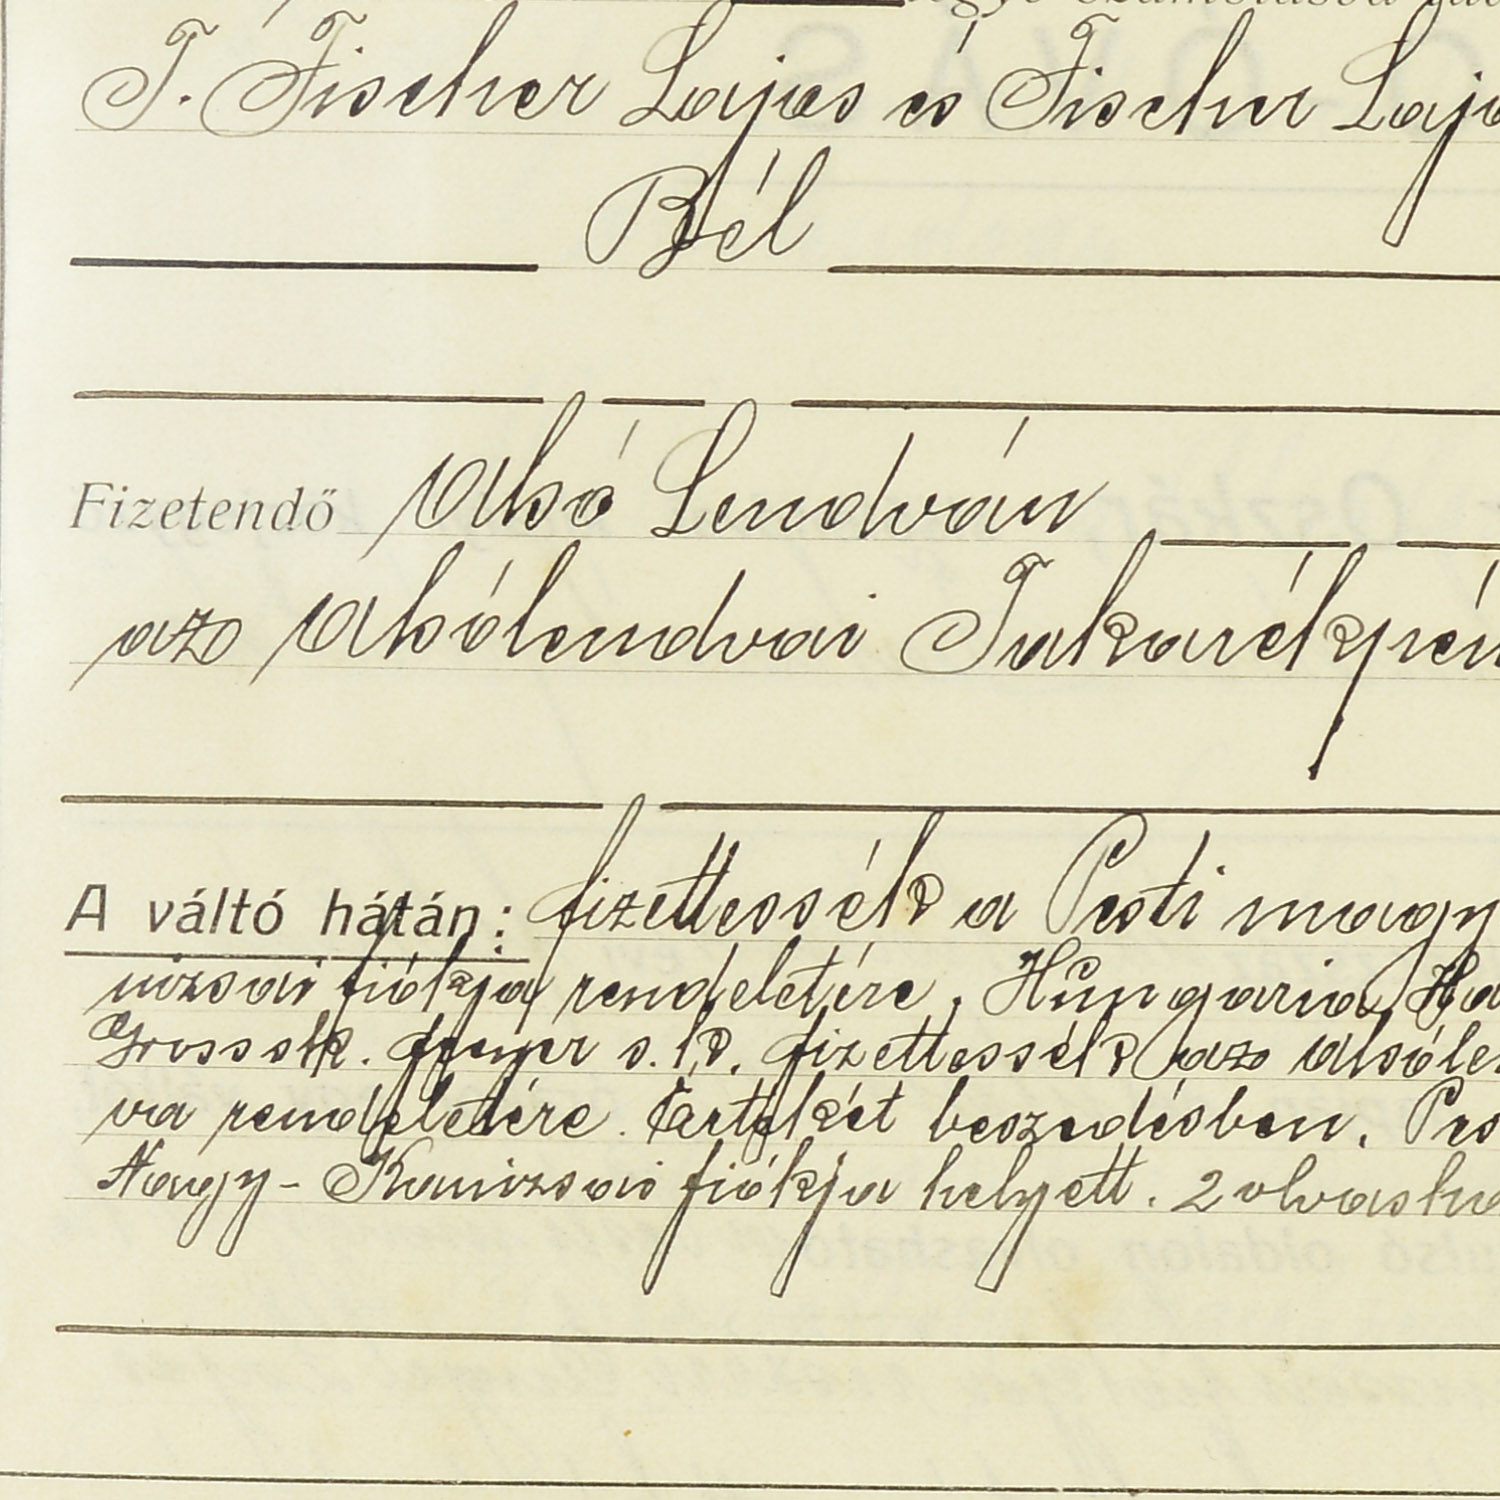 T. Fischer Lajos és Fischer Lajo
Bél
Fizetendő Alsó Lendván
az Alsólendvai Takarékpén
A váltó hátán: fizettessék a Pesti magy
nizsai fiókja rendeletére, Hungaria Ha
fizettessék az alsóle
va rendeletére. Értékét beszedésben. Pes
Nagy-Kanizsai fiókja helyett. 2 olvasha